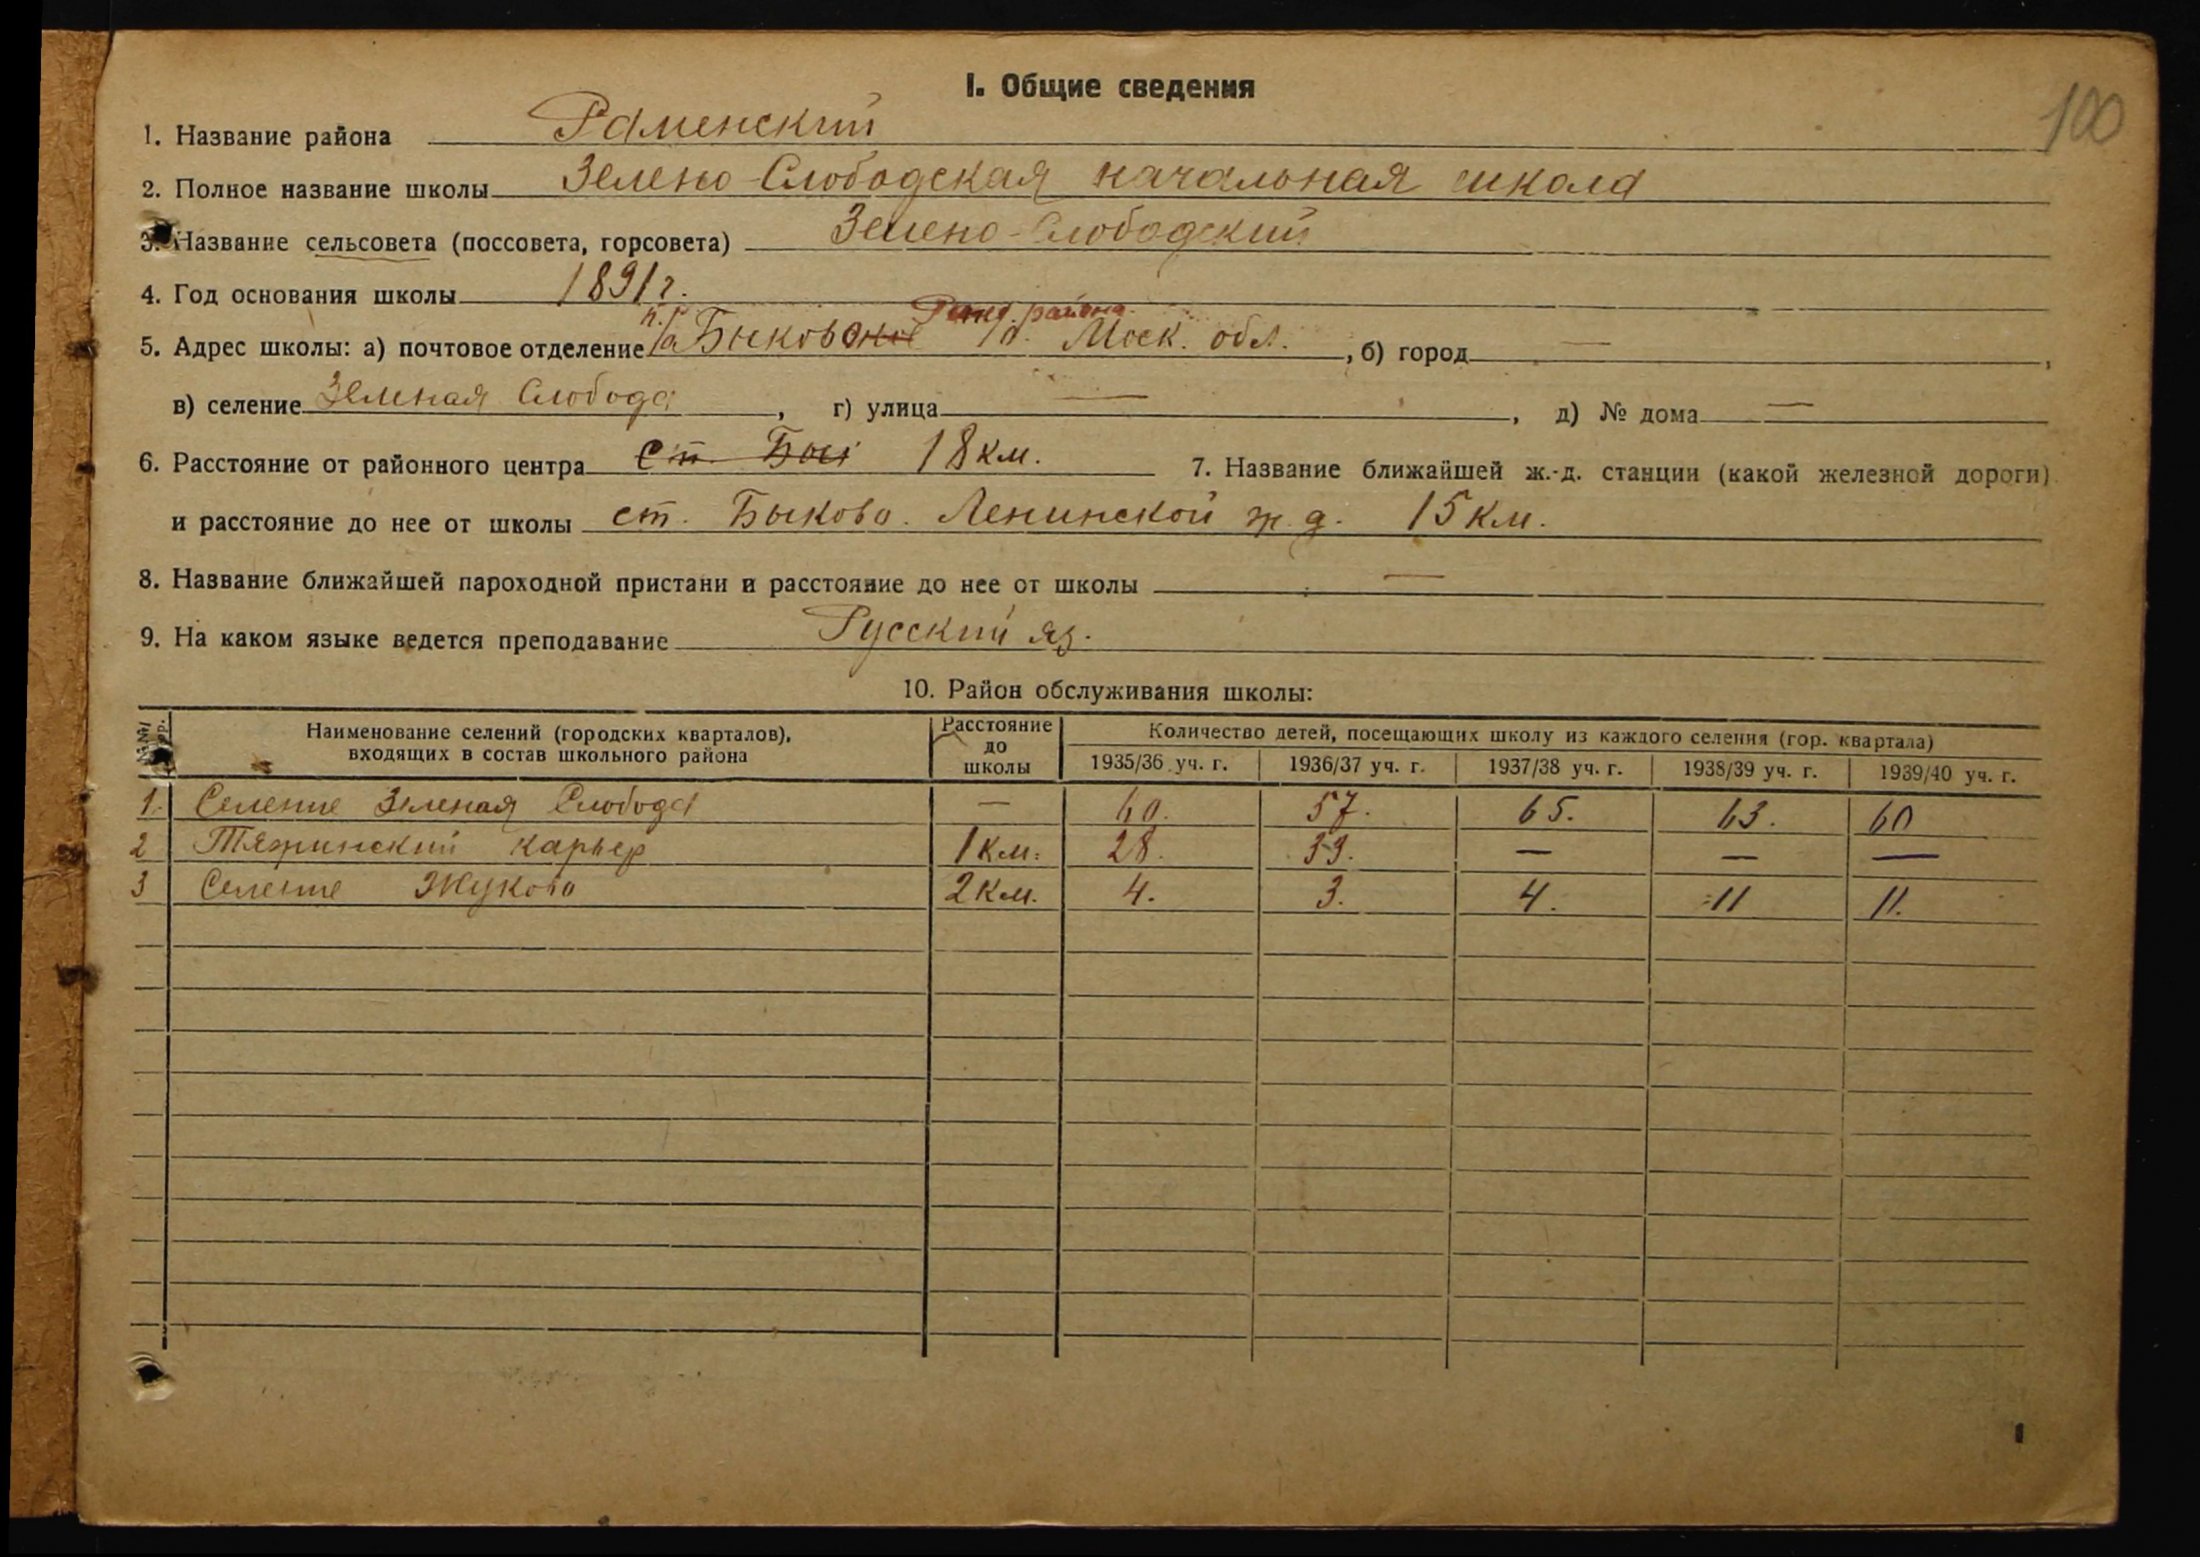 I. Общие сведения
100
1. Название района Раменский
2. Полное название школы Зелено-Слободская начальная школа
3. Название сельсовета (поссовета, горсовета) Зелено-Слободский
4. Год основания школы 1891 г.
района
5. Адрес школы: а) почтовое отделение п/о Быковское Моск. обл. , б) город — ,
в) селение Зеленая Слобода , г) улица — , д) № дома —
6. Расстояние от районного центра ст. Бык 18 км. 7. Название ближайшей ж.-д. станции (какой железной дороги)
и расстояние до нее от школы ст. Быково. Ленинской ж. д. 15 км.
8. Название ближайшей пароходной пристани и расстояние до нее от школы —
9. На каком языке ведется преподавание Русский яз.
10. Район обслуживания школы:
Наименование селений (городских кварталов), входящих в состав школьного района
Расстояние до школы
Количество детей, посещающих школу из каждого селения (гор. квартала)
1935/36 уч. г. 1936/37 уч. г. 1937/38 уч. г. 1938/39 уч. г. 1939/40 уч. г.
1. Селение Зеленая Слобода — 60. 57. 65. 63. 60
2 Тяжинский карьер 1 км. 28. 39. — — —
3 Селение Жуково 2 км. 4. 3. 4. 11 11.
1